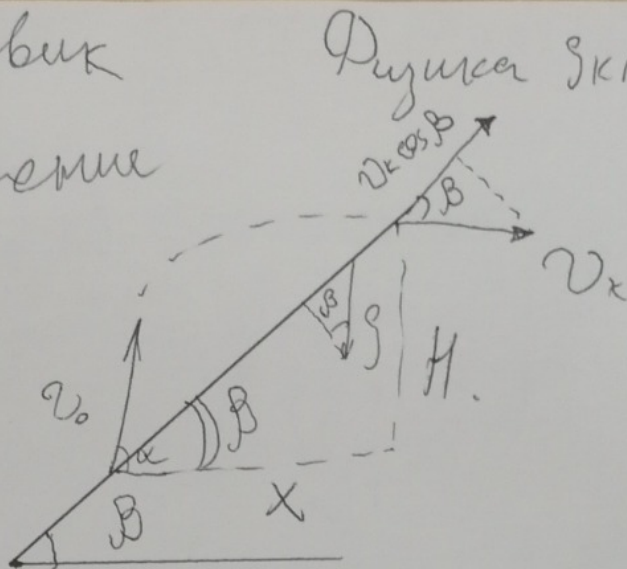 вик Физика 9кл
ение
v_к cos β
β
v_к
β
g
H.
v₀
α
β
X
β